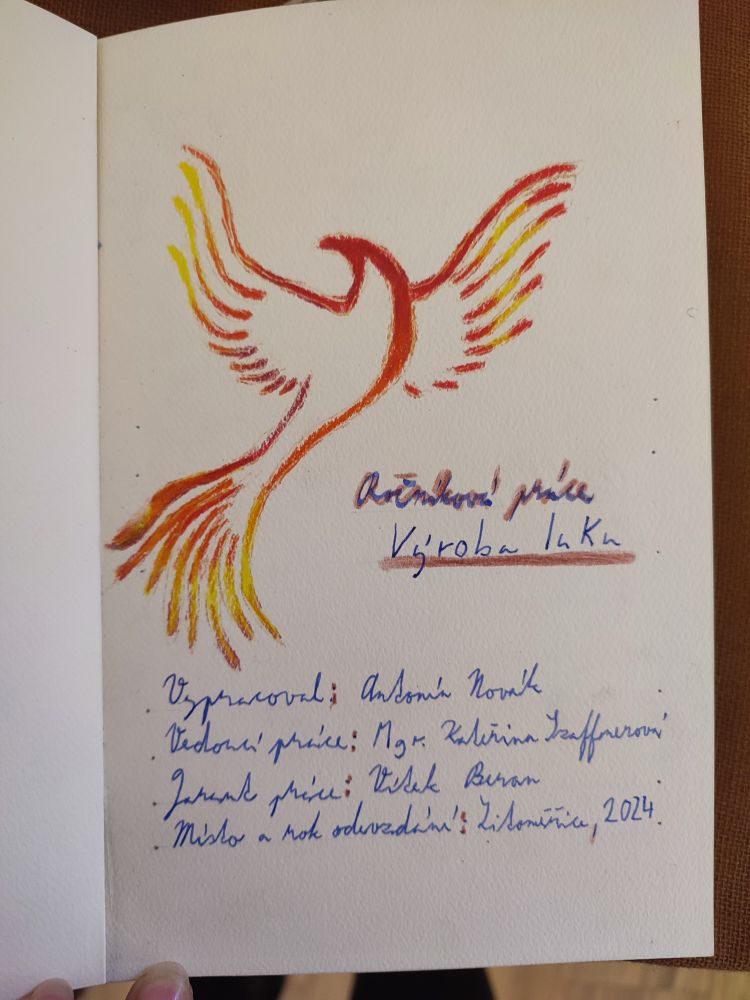 Ročníková práce
Výroba luku
Vypracoval: Antonín Novák
Vedoucí práce: Mgr. Kateřina
Garant práce: Vítek Beran
Místo a rok odevzdání: Litoměřice, 2024